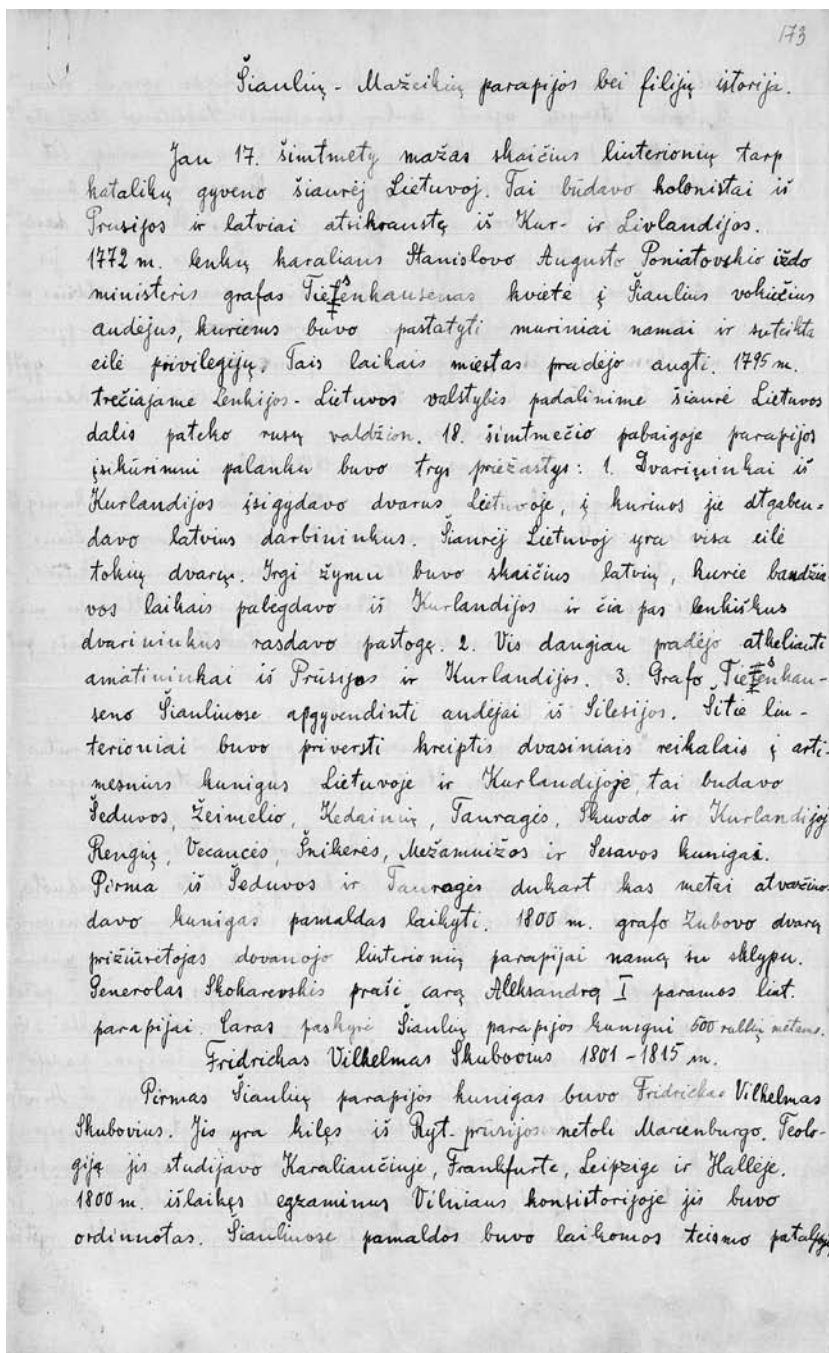 173
Šiaulių - Mažeikių parapijos bei filijų istorija.
Jau 17. šimtmety mažas skaičius liuterionių tarp
katalikų gyveno šiaurėj Lietuvoj. Tai būdavo kolonistai iš
Prusijos ir latviai atsikraustę iš Kur- ir Livlandijos.
1772 m. lenkų karaliaus Stanislovo Augusto Poniatovskio iždo
ministeris grafas Tiesenhausenas kvietė į Šiaulius vokiečius
audėjus, kuriems buvo pastatyti muriniai namai ir suteikta
eilė privilegijų. Tais laikais miestas pradėjo augti. 1795 m.
trečiajame Lenkijos - Lietuvos valstybės padalinime šiaurė Lietuvos
dalis pateko rusų valdžion. 18. šimtmečio pabaigoje parapijos
įsikūrimui palanku buvo trys priežastys: 1. Dvarininkai iš
Kurlandijos įsigydavo dvarus Lietuvoje, į kuriuos jie atgaben-
davo latvius darbininkus. Šiaurėj Lietuvoj yra visa eilė
tokių dvarų. Irgi žymu buvo skaičius latvių, kurie baudžia
vos laikais pabėgdavo iš Kurlandijos ir čia pas lenkiškus
dvarininkus rasdavo pastogę. 2. Vis daugiau pradėjo atkeliauti
amatininkai iš Prūsijos ir Kurlandijos. 3. Grafo Tiesenhau-
seno Šiauliuose apgyvendinti audėjai iš Silesijos. Šitie liu-
terioniai buvo priversti kreiptis dvasiniais reikalais į arti-
mesnius kunigus Lietuvoje ir Kurlandijoje, tai budavo
Šeduvos, Žeimelio, Kedainių, Tauragės, Skuodo ir Kurlandijoj
Rengių, Vecaucės, Šnikerės, Mežamuižos ir Sesavos kunigai.
Pirma iš Šeduvos ir Tauragės dukart kas metai atvažiuo-
davo kunigas pamaldas laikyti. 1800 m. grafo Zubovo dvarų
prižiūrėtojas dovanojo liuterionių parapijai namą su sklypu.
Generolas Skokarevskis prašė carą Aleksandrą I paramos liut.
parapijai. Caras paskyrė Šiaulių parapijos kunigui 500 rublių metams.
Fridrickas Vilhelmas Skubovius 1801 - 1815 m.
Pirmas Šiaulių parapijos kunigas buvo Fridrickas Vilhelmas
Skubovius. Jis yra kilęs iš Ryt-prūsijos netoli Marienburgo. Teolo-
giją jis studijavo Karaliaučiuje, Frankfurte, Leipzige ir Hallėje.
1800 m. išlaikęs egzaminus Vilniaus konsistorijoje jis buvo
ordinuotas. Šiauliuose pamaldos buvo laikomos teismo